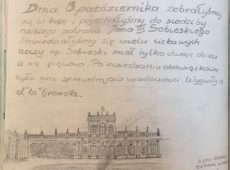 Dnia 8 października zebraliśmy
się w kupę i pojechaliśmy do siedziby
naszego patrona Jana III Sobieskiego
Dowiedzieliśmy się wielu ciekawych
rzeczy np. Sobieski miał tylko dwoje dzieci
a nie piętnaścioro. Po zwiedzaniu obowiązkowa
była gra sprawdzająca wiadomości. Wygrały
d'la Granolki.